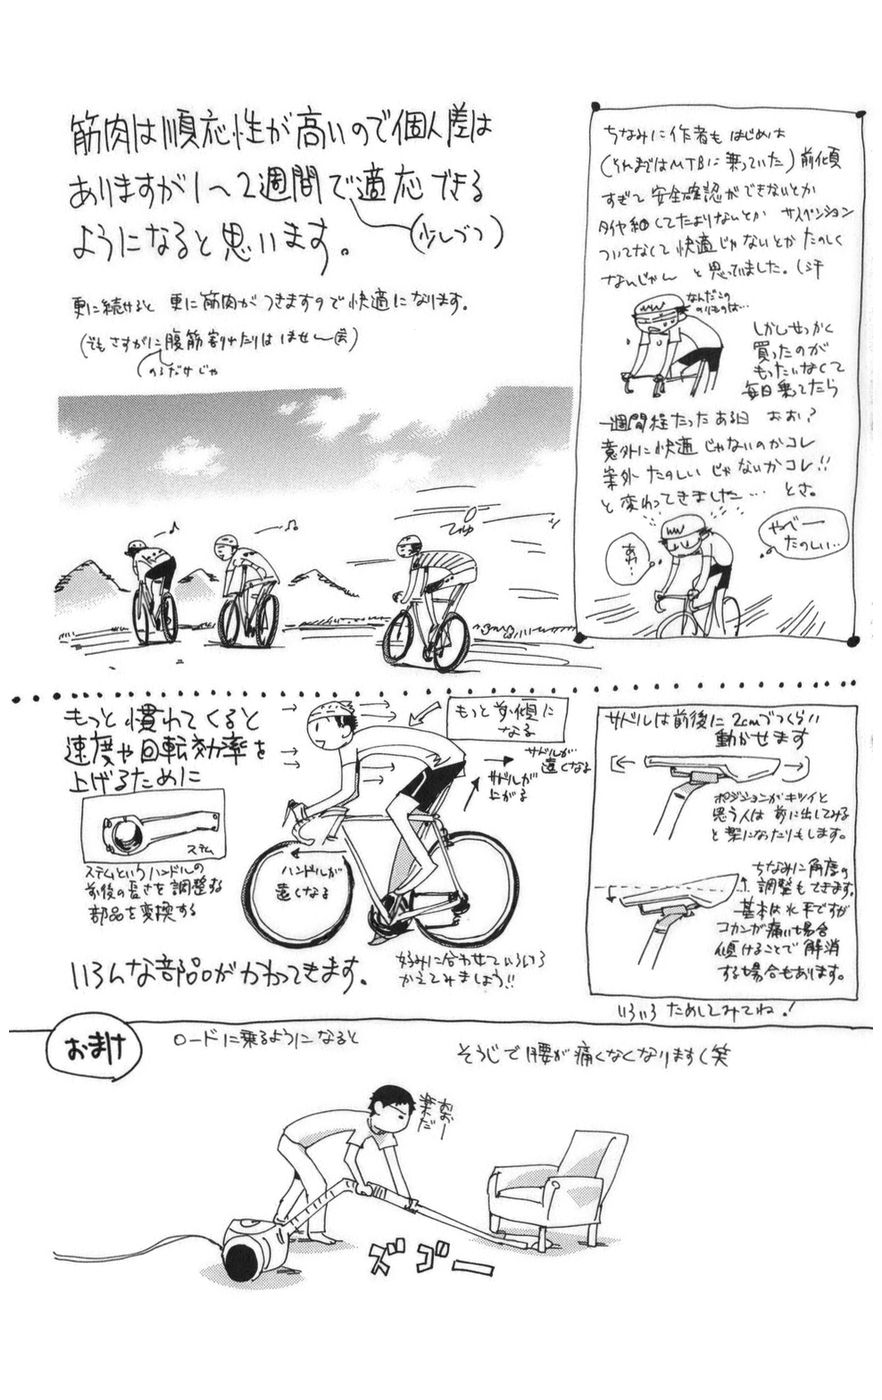 筋肉は順応性が高いので個人差は
ありますが1〜2週間で適応できる
ようになると思います。
(少しづつ)
更に続けると 更に筋肉がつきますので快適になります。
(でもさすがに腹筋割れたりはしません(笑)
のるだけじゃ
ちなみに作者も はじめは
(それまではMTBに乗っていた)前傾
すぎて安全確認ができないとか
タイヤ細くてたよりないとか サスペンション
ついてなくて快適じゃないとか たのしく
ないじゃん と思っていました。(汗
なんだこの
のりものは…
しかしせっかく
買ったのが
もったいなくて
毎日乗ってたら
一週間程たったある日 おお?
意外に快適じゃないのかコレ
案外たのしいじゃないかコレ!!
と変わってきました… とさ。
あれ
…
やべー
たのしい…
もっと慣れてくると
速度や回転効率を
上げるために
ステム
ステムというハンドルの
前後の長さを調整する
部品を変換する
いろんな部品がかわってきます。
もっと前傾に
なる
サドルが
遠くなる
サドルが
上がる
ハンドルが
遠くなる
好みに合わせていろいろ
かえてみましょう!!
サドルは前後に2cmづつくらい
動かせます
ポジションがキツイと
思う人は前に出してみる
と楽になったりもします。
ちなみに角度の
調整もできます。
基本は水平ですが
コカンが痛い場合
傾けることで解消
する場合もあります。
いろいろためしてみてね!
おまけ
ロードに乗るようになると
そうじで腰が痛くなくなります(笑
おおー
楽だ
ズゴー